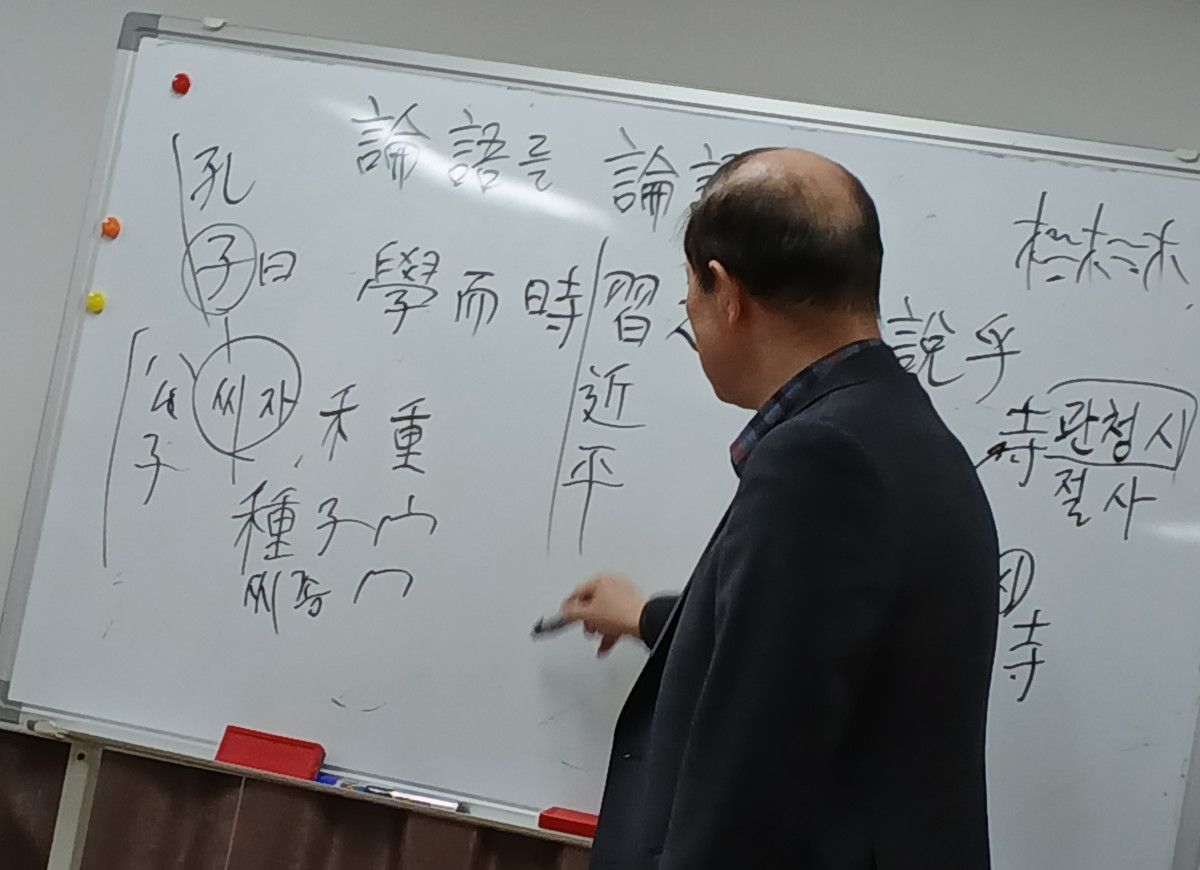 論語를 論
孔
子曰 學而時習 說乎
近
平
씨자 禾重
子
種子
씨종
寺 관청시
절사
寺